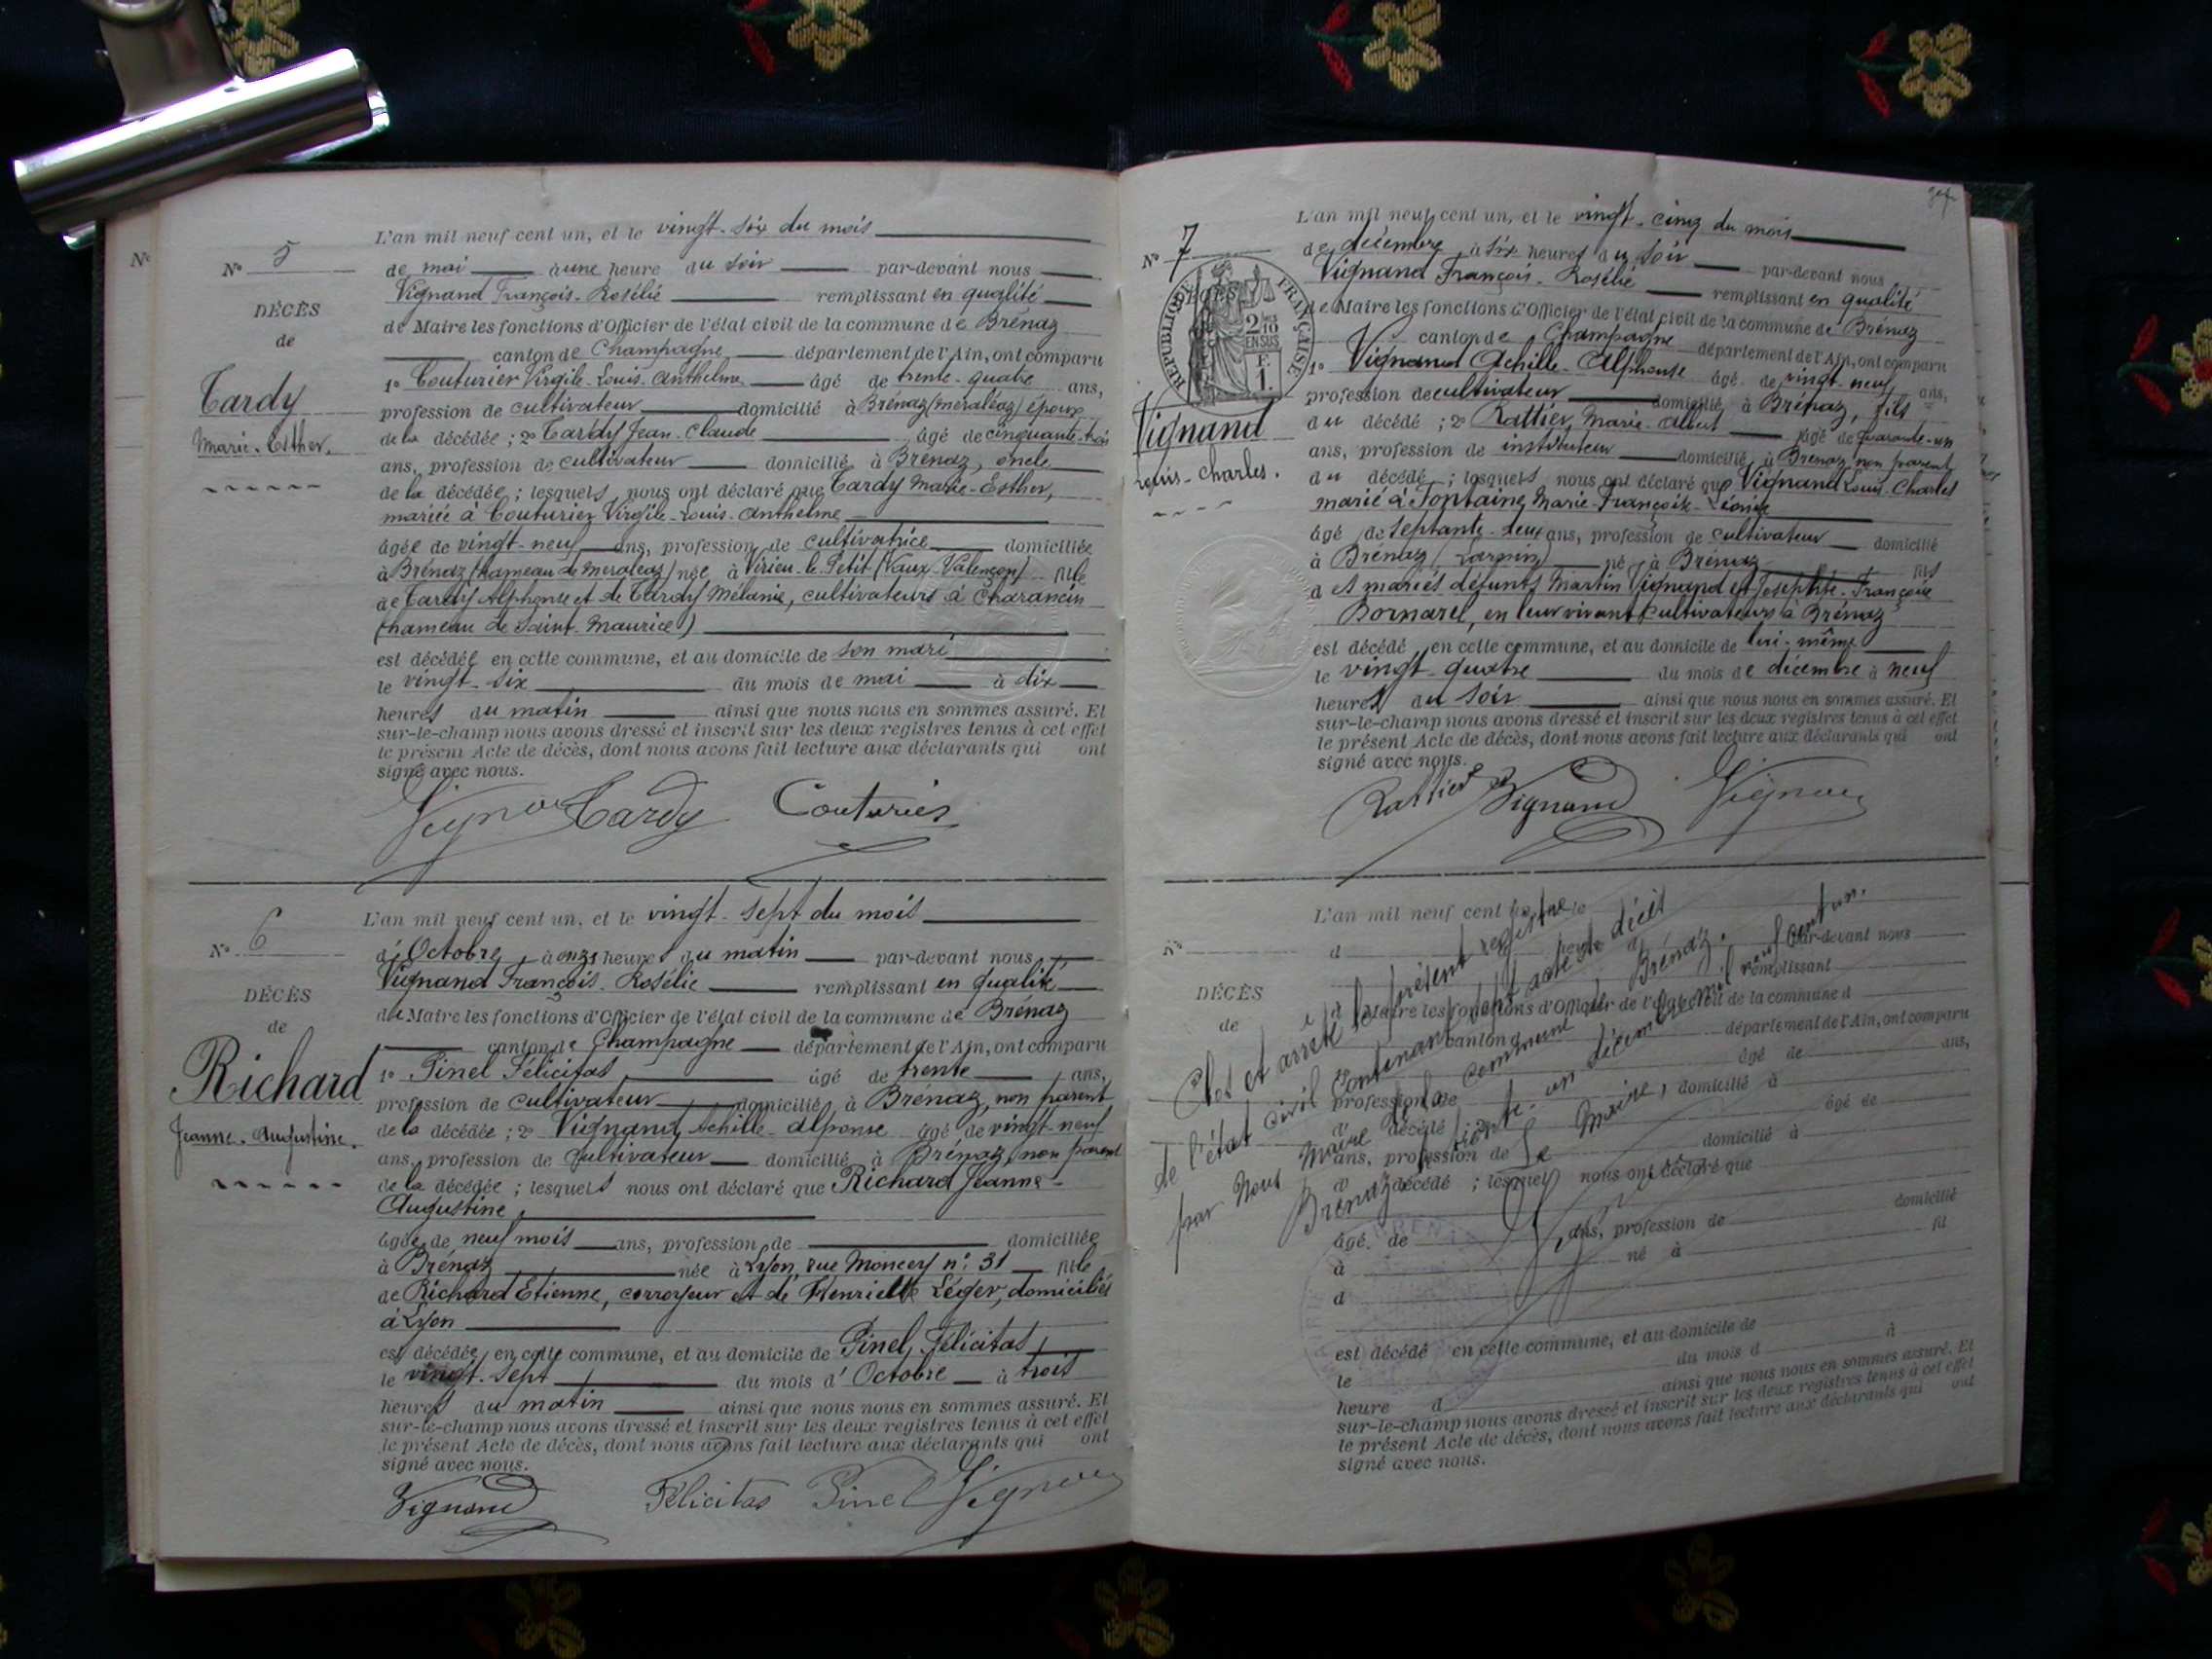 Nº
Nº 5
DÉCÈS
de
Tardy
Marie-Esther.
L'an mil neuf cent un, et le vingt-six du mois
de mai à une heure du soir par-devant nous
Vignand François-Rosélie remplissant en qualité
de Maire les fonctions d'Officier de l'état civil de la commune de Brénaz
canton de Champagne département de l'Ain, ont comparu
1º Couturier Virgile-Louis-Anthelme âgé de trente-quatre ans,
profession de cultivateur domicilié à Brénaz (méraléaz) époux
de la décédée ; 2º Tardy Jean-Claude âgé de cinquante-trois
ans, profession de cultivateur domicilié à Brénaz, oncle
de la décédée ; lesquels nous ont déclaré que Tardy Marie-Esther,
mariée à Couturier Virgile-Louis-Anthelme
âgée de vingt-neuf ans, profession de cultivatrice domiciliée
à Brénaz (hameau de meraléaz) née à Virieu-le-Petit (Vaux-Valençon) fille
de Tardy Alphonse et de Tardy Mélanie, cultivateurs à Charancin
(hameau de Saint-Maurice)
est décédée en cette commune, et au domicile de son mari
le vingt-six du mois de mai à dix
heures du matin ainsi que nous nous en sommes assuré. Et
sur-le-champ nous avons dressé et inscrit sur les deux registres tenus à cet effet
le présent Acte de décès, dont nous avons fait lecture aux déclarants qui ont
signé avec nous.
Tardy Couturier
Nº 6
DÉCÈS
de
Richard
Jeanne-Augustine.
L'an mil neuf cent un, et le vingt-sept du mois
d'Octobre à onze heures du matin par-devant nous
Vignand François-Rosélie remplissant en qualité
de Maire les fonctions d'Officier de l'état civil de la commune de Brénaz
canton de Champagne département de l'Ain, ont comparu
1º Pinel Félicitas, âgé de trente ans,
profession de cultivateur domicilié à Brénaz, non parent
de la décédée ; 2º Vignand Achille-Alponse âgé de vingt-neuf
ans, profession de cultivateur domicilié à Brénaz, non parent
de la décédée ; lesquels nous ont déclaré que Richard Jeanne-
Augustine,
âgée de neuf mois ans, profession de domiciliée
à Brénaz née à Lyon, rue Moncey nº 31 fille
de Richard Etienne, corroyeur et de Henriette Léger, domiciliés
à Lyon
est décédée en cette commune, et au domicile de Pinel Félicitas
le vingt-sept du mois d'Octobre à trois
heures du matin ainsi que nous nous en sommes assuré. Et
sur-le-champ nous avons dressé et inscrit sur les deux registres tenus à cet effet
le présent Acte de décès, dont nous avons fait lecture aux déclarants qui ont
signé avec nous.
Vignand Félicitas Pinel
Nº 7
RÉPUBLIQUE FRANÇAISE
2/10
EN SUS
F.
1.
Vignand
Louis-Charles.
L'an mil neuf cent un, et le vingt-cinq du mois
de décembre à six heures du soir par-devant nous
Vignand François-Rosélie remplissant en qualité
de Maire les fonctions d'Officier de l'état civil de la commune de Brénaz
canton de Champagne département de l'Ain, ont comparu
1º Vignand Achille-Alphonse âgé de vingt-neuf ans,
profession de cultivateur domicilié à Brénaz, fils
du décédé ; 2º Rattier Marie-Albert âgé de quarante-un
ans, profession de instituteur domicilié à Brénaz non parent
du décédé ; lesquels nous ont déclaré que Vignand Louis-Charles
marié à Fontaine Marie-Françoise-Léonie
âgé de septante-deux ans, profession de cultivateur domicilié
à Brénaz né à Brénaz fils
d et mariés défunts Martin Vignand et Josephte-Françoise
Bornarel, en leur vivant cultivateurs à Brénaz
est décédé en cette commune, et au domicile de lui-même
le vingt-quatre du mois de décembre à neuf
heures du soir ainsi que nous nous en sommes assuré. Et
sur-le-champ nous avons dressé et inscrit sur les deux registres tenus à cet effet
le présent Acte de décès, dont nous avons fait lecture aux déclarants qui ont
signé avec nous.
Rattier Vignand
Nº
DÉCÈS
de
L'an mil neuf cent
d par-devant nous
remplissant
Maire les fonctions d'Officier de l'état civil de la commune d
canton d département de l'Ain, ont comparu
âgé de ans,
profession de domicilié à
d décédé ; 2º âgé de
ans, profession de domicilié à
d décédé ; lesquel nous ont déclaré que
âgé de ans, profession de domicilié
à né à fil
d
est décédé en cette commune, et au domicile de
le du mois d à
heure d ainsi que nous nous en sommes assuré. Et
sur-le-champ nous avons dressé et inscrit sur les deux registres tenus à cet effet
le présent Acte de décès, dont nous avons fait lecture aux déclarants qui ont
signé avec nous.
Clos et arrêté le présent registre
de l'état civil contenant sept acte de décès
par Nous Maire de la commune de Brénaz.
Brénaz trente-un décembre mil neuf cent un.
Le Maire,